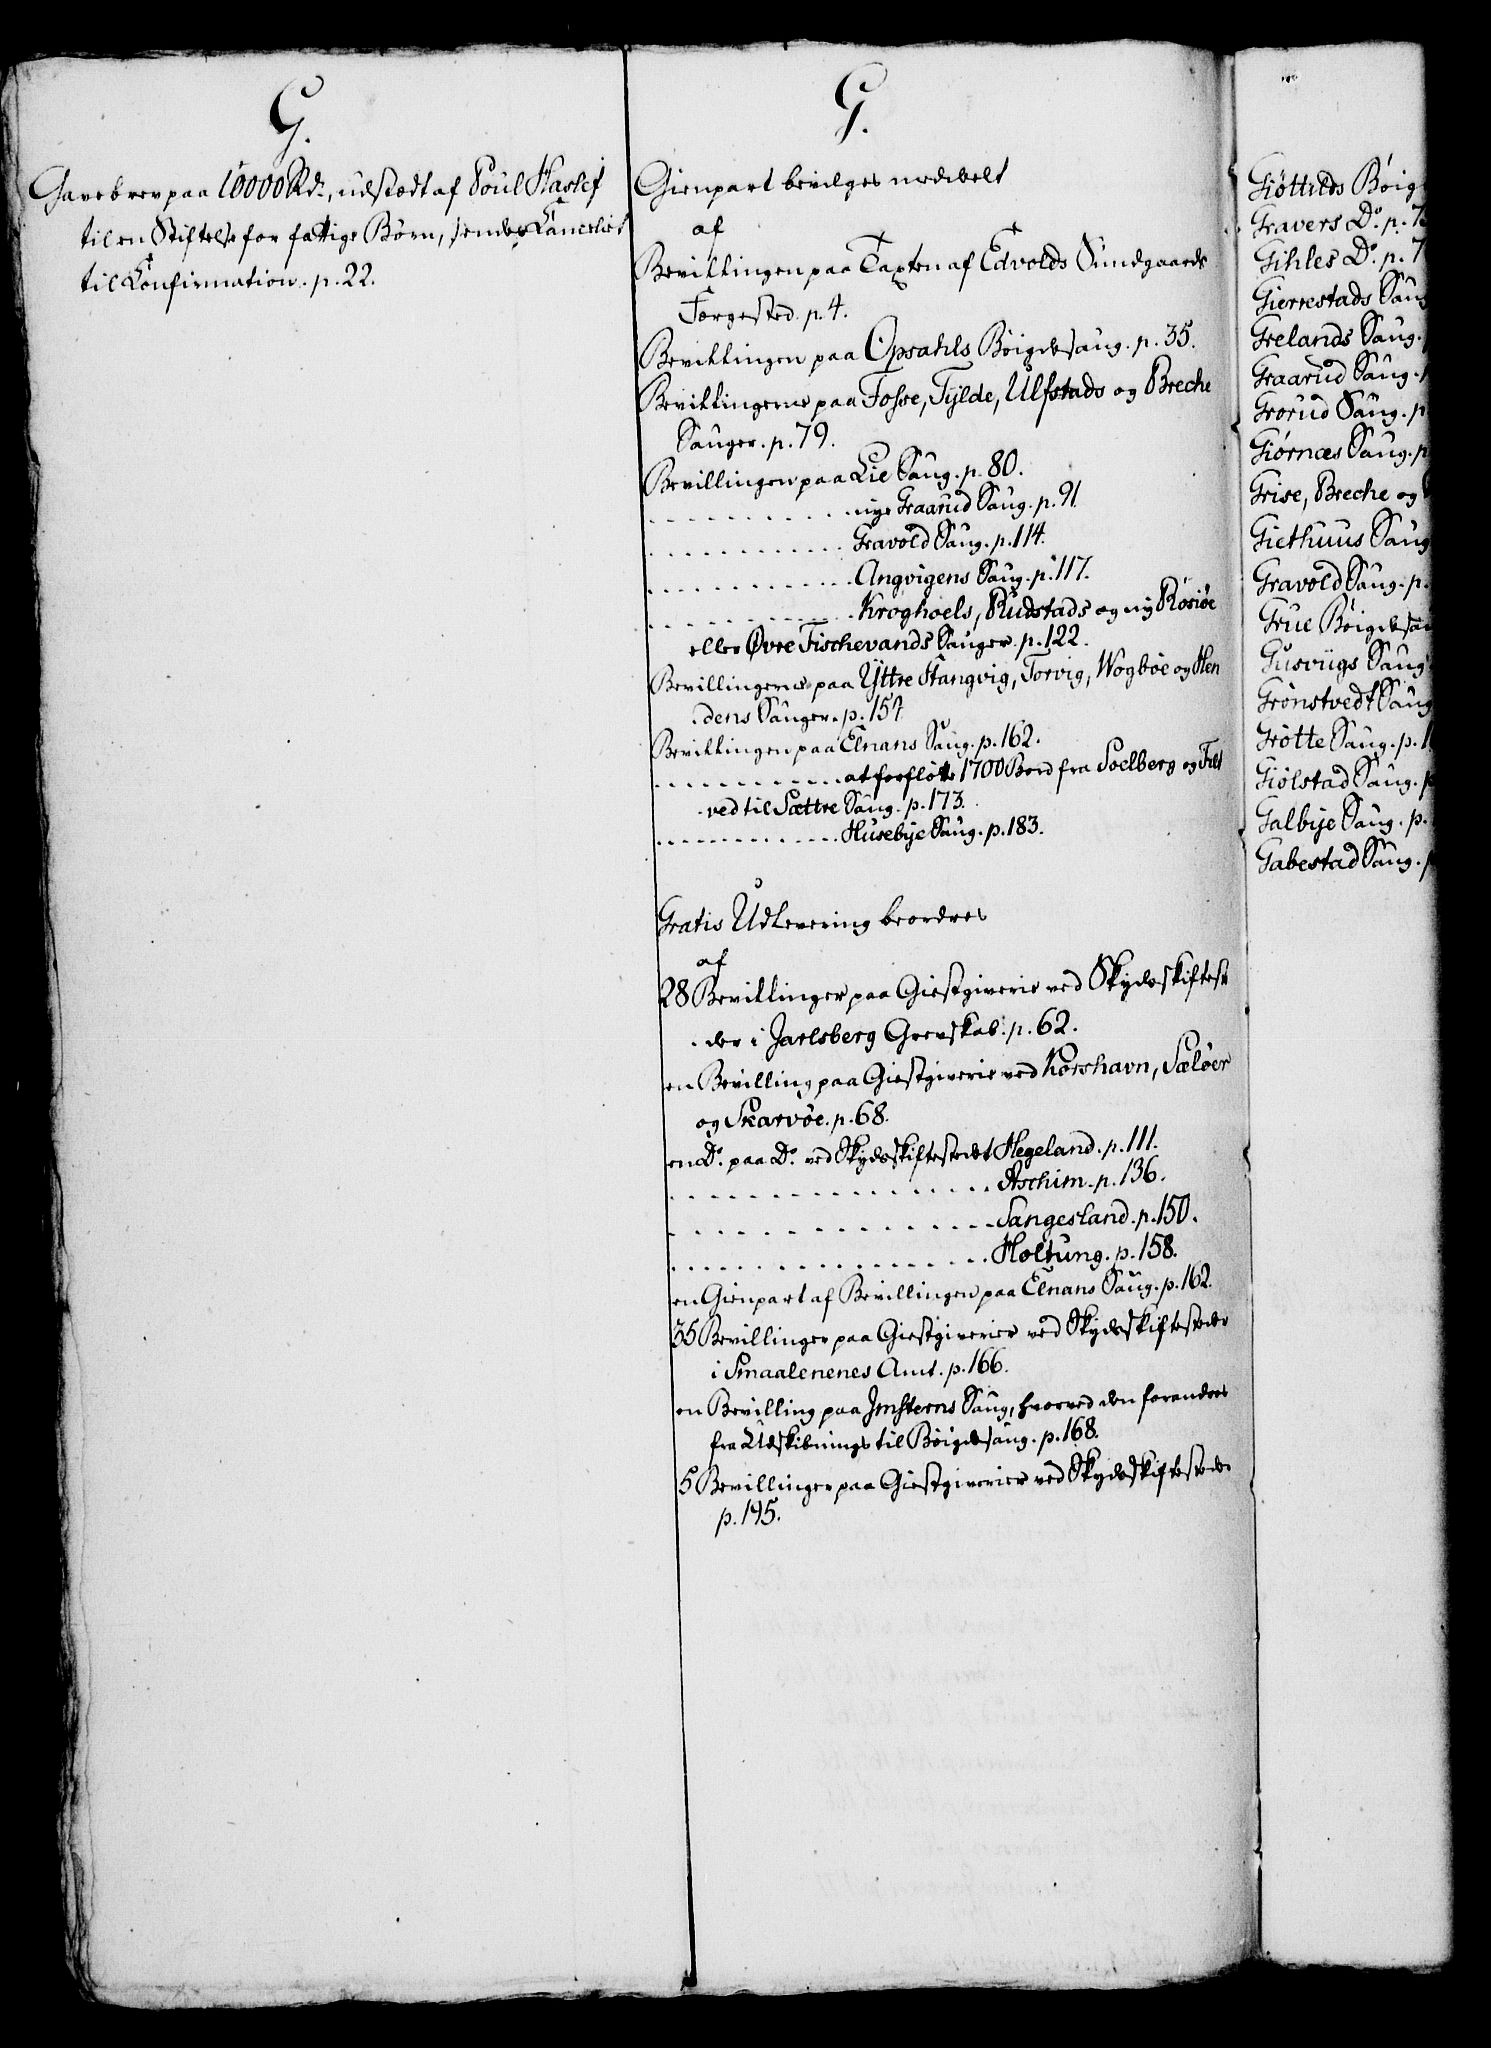 G.
Gavebrev paa 10000 Rd., udstædt af Poul Haslef
til en Stiftelse for fattige Børn, sendes Cancelliet
til Confirmation. p. 22.
G.
Gienpart bevilges meddeelt
af
Bevillingen paa Taxten af Edvolds Sundgaards
Færgested. p. 4.
Bevillingen paa Opsahls Bøigdesaug. p. 35.
Bevillingerne paa Fosse, Fylde, Ulfstads og Breche
Sauger. p. 79.
Bevillingen paa Lie Saug. p. 80.
nye Graarud Saug. p. 91.
Gravold Saug. p. 114.
Angvigens Saug. p. 117.
Kroghoels, Rudstads og ny Røsiøe
eller Øvre Fischevands Sauger. p. 122.
Bevillingerne paa Yttre Stangvig, Torvig, Wogbøe og Hen
dens Sauger. p. 154.
Bevillingen paa Elnans Saug. p. 162.
at forfløtte 1700 Bord fra Soelberg og Filt
ved til Sættre Saug. p. 173.
Husebye Saug. p. 183.
Gratis Udlevering beordres
af
28 Bevillinger paa Giestgiverie ved Skydsskifteste
der i Jarlsberg Grevskab. p. 62.
en Bevilling paa Giestgiverie ved Korshavn, Sæløer
og Skarvøe. p. 68.
en Do. paa Do. ved Skydsskiftestedet Hegeland. p. 111.
Aschim. p. 136.
Sangesland. p. 150.
Holtung. p. 158.
en Gienpart af Bevillingen paa Elnans Saug. p. 162.
35 Bevillinger paa Giestgiverier ved Skydsskiftesteder
i Smaalenenes Amt. p. 166.
en Bevilling paa Jmsterns Saug, hvorved den forandres
fra Udskibnings til Bøigdesaug. p. 168.
5 Bevillinger paa Giestgiverier ved Skydsskiftesteder
p. 195.
Giøttilds Bøig
Gravers Do. p. 7
Gihles Do. p. 7
Gierrestads Saug
Grelands Saug.
Graarud Saug.
Grorud Saug. p
Giørnæs Saug. p
Grise, Breche og
Giethuus Saug
Gravold Saug. p.
Grue Bøigdesau
Gusviigs Saug
Grønstvedt Saug
Grøtte Saug. p. 1
Giølstad Saug. p
Galbye Saug. p.
Gabestad Saug. p